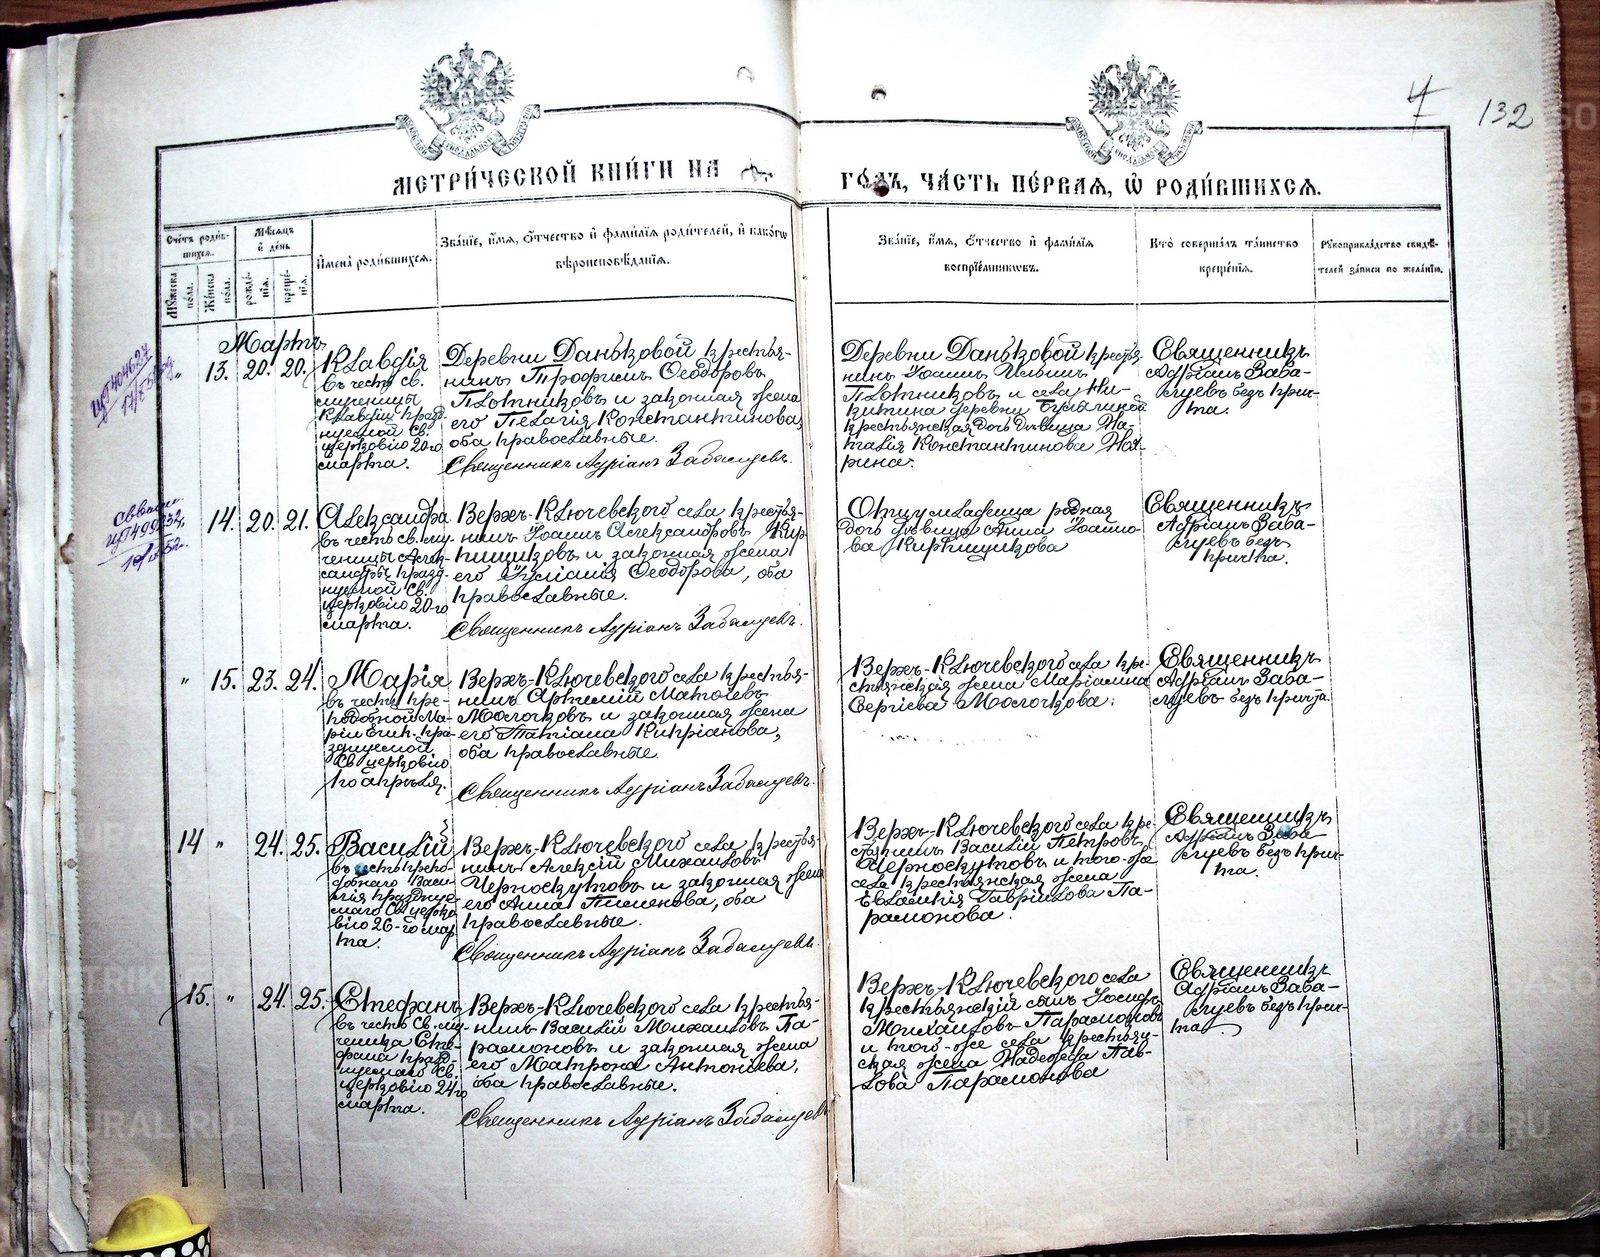 132
МЕТРИ́ЧЕСКОЙ КНИ́ГИ НА
ГО́ДЪ, ЧА́СТЬ ПЕ́РВАЯ, Ѡ҆ РОДИ́ВШИХСЯ.
Сче́тъ роди́в-
шихся.
Мѣ́сяцъ
и҆ де́нь
Мꙋ́жеска
по́ла.
Же́нска
по́ла.
рожде́-
нїя.
креще́-
нїя.
И҆мена̀ роди́вшихся.
Зва́нїе, и҆́мя, ѻ҆́тчество и҆ фами́лїя роди́телей, и҆ како́гѡ
вѣроисповѣ́данїя.
Зва́нїе, и҆́мя, ѻ҆́тчество и҆ фами́лїя
воспрїе́мникѡвъ.
Кто̀ соверша́лъ та́инство
креще́нїя.
Рꙋкоприкла́дство свидѣ́-
телей за́писи по жела́нїю.
Мартъ
„ 13. 20. 20.
Клавдія
въ честь св.
мученицы
Клавдіи празд-
нуемой Св.
церковію 20-го
марта.
Деревни Даньковой крестья-
нинъ Трофимъ Ѳеодоровъ
Плотниковъ и законная жена
его Пелагія Константинова,
оба православные.
Священникъ Адріанъ Забалуевъ.
Деревни Даньковой крестья-
нинъ Іоаннъ Ильинъ
Плотниковъ и села Ни-
китина деревни
крестьянская дочь дѣвица На-
талія Константинова
Священникъ
Адріанъ Заба-
луевъ безъ прич-
та.
14. 20. 21.
Александра
въ честь св. му-
ченицы Алек-
сандры празд-
нуемой Св.
церковію 20-го
марта.
Верхъ-Ключевского села крестья-
нинъ Іоаннъ Александровъ Кир-
пищиковъ и законная жена
его Іуліанія Ѳеодорова, оба
православные.
Священникъ Адріанъ Забалуевъ.
Отцу младенца родная
дочь дѣвица Анна Іоанно-
ва Кирпищикова
Священникъ
Адріанъ Заба-
луевъ безъ
причта.
„ 15. 23. 24.
Марія
въ честь пре-
подобной Ма-
ріи Егип. пра-
зднуемой
Св. церковію
1-го апрѣля.
Верхъ-Ключевского села крестья-
нинъ Артемій Матѳіевъ
Молочковъ и законная жена
его Татіана Кипріанова,
оба православные.
Священникъ Адріанъ Забалуевъ.
Верхъ-Ключевского села кре-
стьянская жена Маріанна
Сергіева Молочкова.
Священникъ
Адріанъ Заба-
луевъ безъ причта.
14 „ 24. 25.
Василій
въ честь препо-
добнаго Васи-
лія празднуе-
маго Св. церко-
вію 26-го мар-
та.
Верхъ-Ключевского села крестья-
нинъ Алексій Михаиловъ
Черноскутовъ и законная жена
его Анна Пименова, оба
православные.
Священникъ Адріанъ Забалуевъ.
Верхъ-Ключевского села кре-
стьнинъ Василій Петровъ
Черноскутовъ и того-же
села крестьянская жена
Евлампія Гавріилова Па-
рамонова.
Священникъ
Адріанъ Заба-
луевъ безъ прич-
та.
15. „ 24. 25.
Стефанъ
въ честь Св. му-
ченика Сте-
фана празд-
нуемаго Св.
церковію 24-го
марта.
Верхъ-Ключевского села крестья-
нинъ Василій Михаиловъ Па-
рамоновъ и законная жена
его Матрона Антоніева,
оба православные.
Священникъ Адріанъ Забалуевъ
Верхъ-Ключевского села
крестьянскій сынъ Іосифъ
Михаиловъ Парамоновъ
и того-же села крестьян-
ская жена Надежда Пав-
лова Парамонова
Священникъ
Адріанъ Заба-
луевъ безъ прич-
та